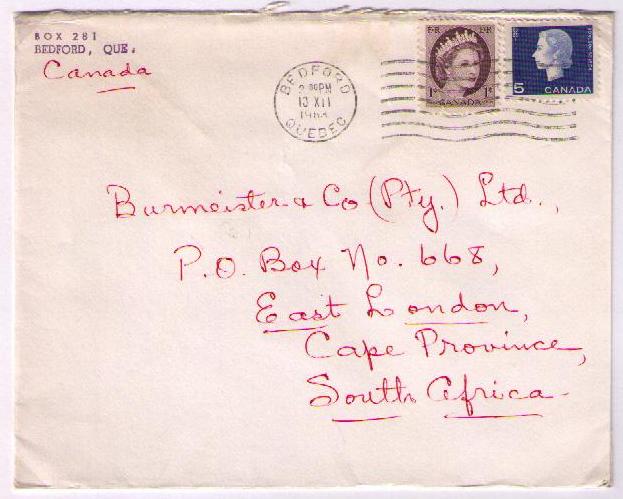 BOX 281
BEDFORD, QUE.
Canada
BEDFORD
PM
13 XII
QUEBEC
E R
E R
1¢
1¢
CANADA
5
CANADA
Burmeister & Co (Pty.) Ltd.,
P.O. Box No. 668,
East London,
Cape Province,
South Africa